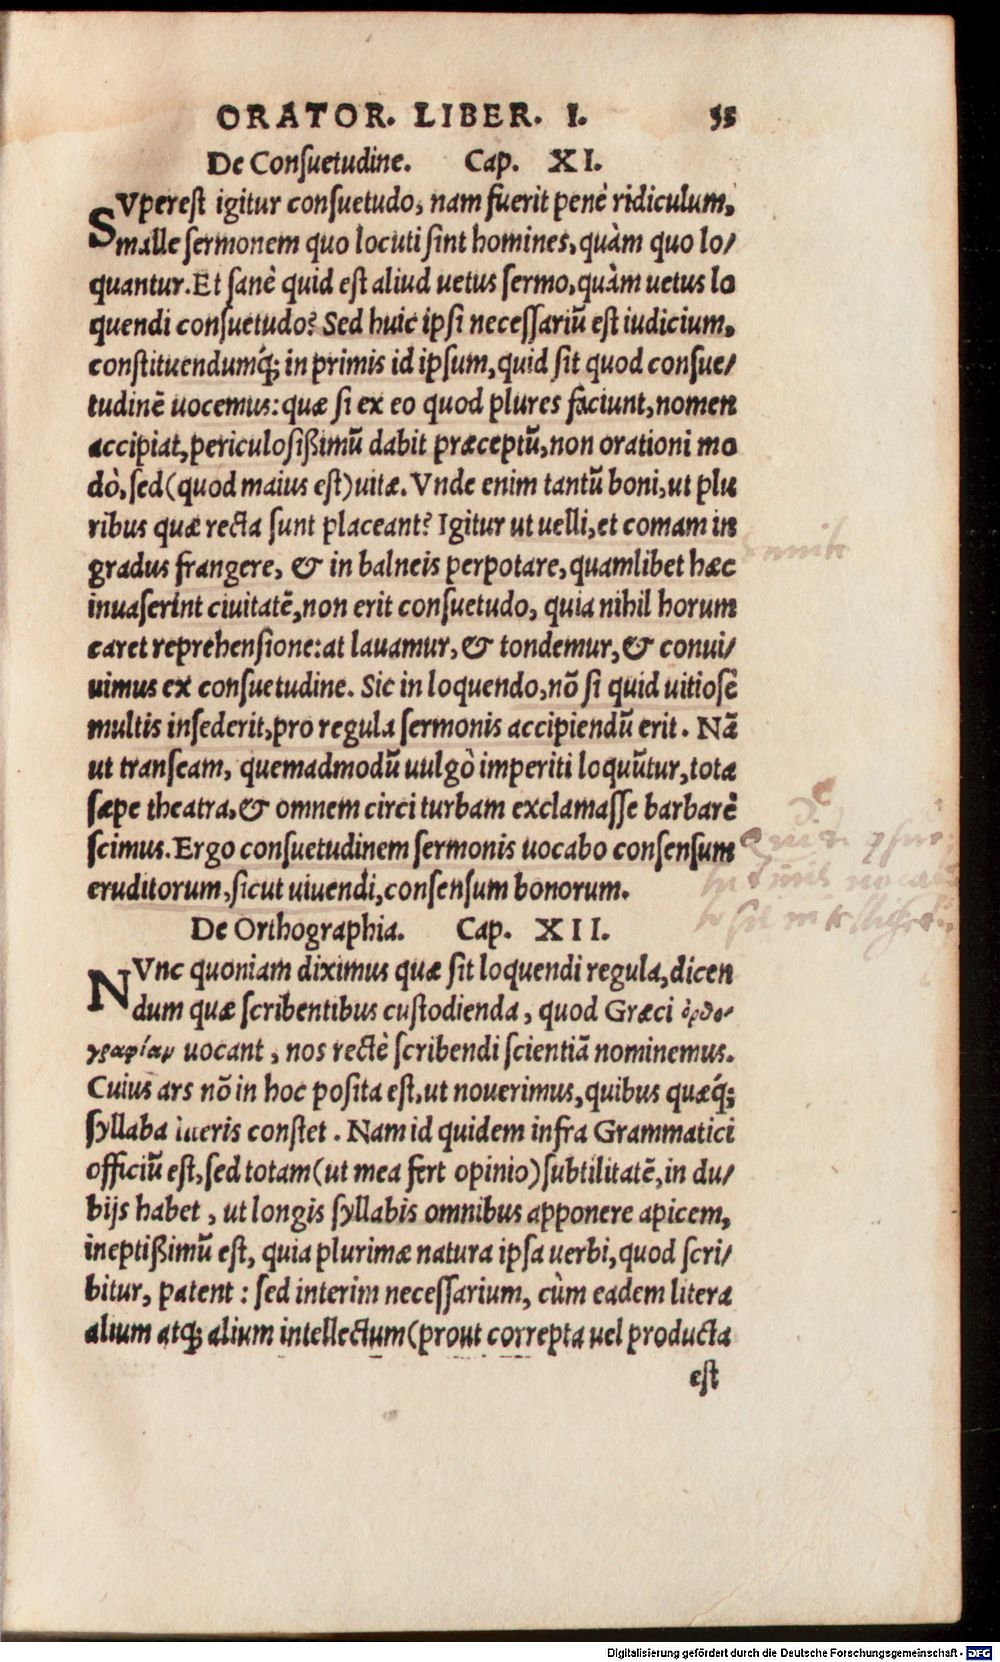 ORATOR. LIBER. I. 55
De Conſuetudine. Cap. XI.
SVpereſt igitur conſuetudo, nam fuerit penè ridiculum,
malle ſermonem quo locuti ſint homines, quàm quo lo/
quantur. Et ſanè quid eſt aliud uetus ſermo, quàm uetus lo
quendi conſuetudo? Sed huic ipſi neceſſariũ eſt iudicium,
conſtituendumq́; in primis id ipſum, quid ſit quod conſue/
tudinẽ uocemus: quæ ſi ex eo quod plures faciunt, nomen
accipiat, periculoſißimũ dabit præceptũ, non orationi mo
dò, ſed (quod maius eſt) uitæ. Vnde enim tantũ boni, ut plu
ribus quæ recta ſunt placeant? Igitur ut uelli, et comam in
gradus frangere, & in balneis perpotare, quamlibet hæc
inuaſerint ciuitatẽ, non erit conſuetudo, quia nihil horum
caret reprehenſione: at lauamur, & tondemur, & conui/
uimus ex conſuetudine. Sic in loquendo, nõ ſi quid uitioſè
multis inſederit, pro regula ſermonis accipiendũ erit. Nã
ut tranſeam, quemadmodũ uulgò imperiti loquũtur, tota
ſæpe theatra, & omnem circi turbam exclamaſſe barbarè
ſcimus. Ergo conſuetudinem ſermonis uocabo conſenſum
eruditorum, ſicut uiuendi, conſenſum bonorum.
De Orthographia. Cap. XII.
NVnc quoniam diximus quæ ſit loquendi regula, dicen
dum quæ ſcribentibus cuſtodienda, quod Græci ὀρθο-
γραφίαν uocant, nos rectè ſcribendi ſcientiã nominemus.
Cuius ars nõ in hoc poſita eſt, ut nouerimus, quibus quæq́;
ſyllaba literis conſtet. Nam id quidem infra Grammatici
officiũ eſt, ſed totam (ut mea fert opinio) ſubtilitatẽ, in du/
bijs habet, ut longis ſyllabis omnibus apponere apicem,
ineptißimũ eſt, quia plurimæ natura ipſa uerbi, quod ſcri/
bitur, patent: ſed interim neceſſarium, cùm eadem litera
alium atq; alium intellectum (prout correpta uel producta
eſt
Digitalisierung gefördert durch die Deutsche Forschungsgemeinschaft - DFG